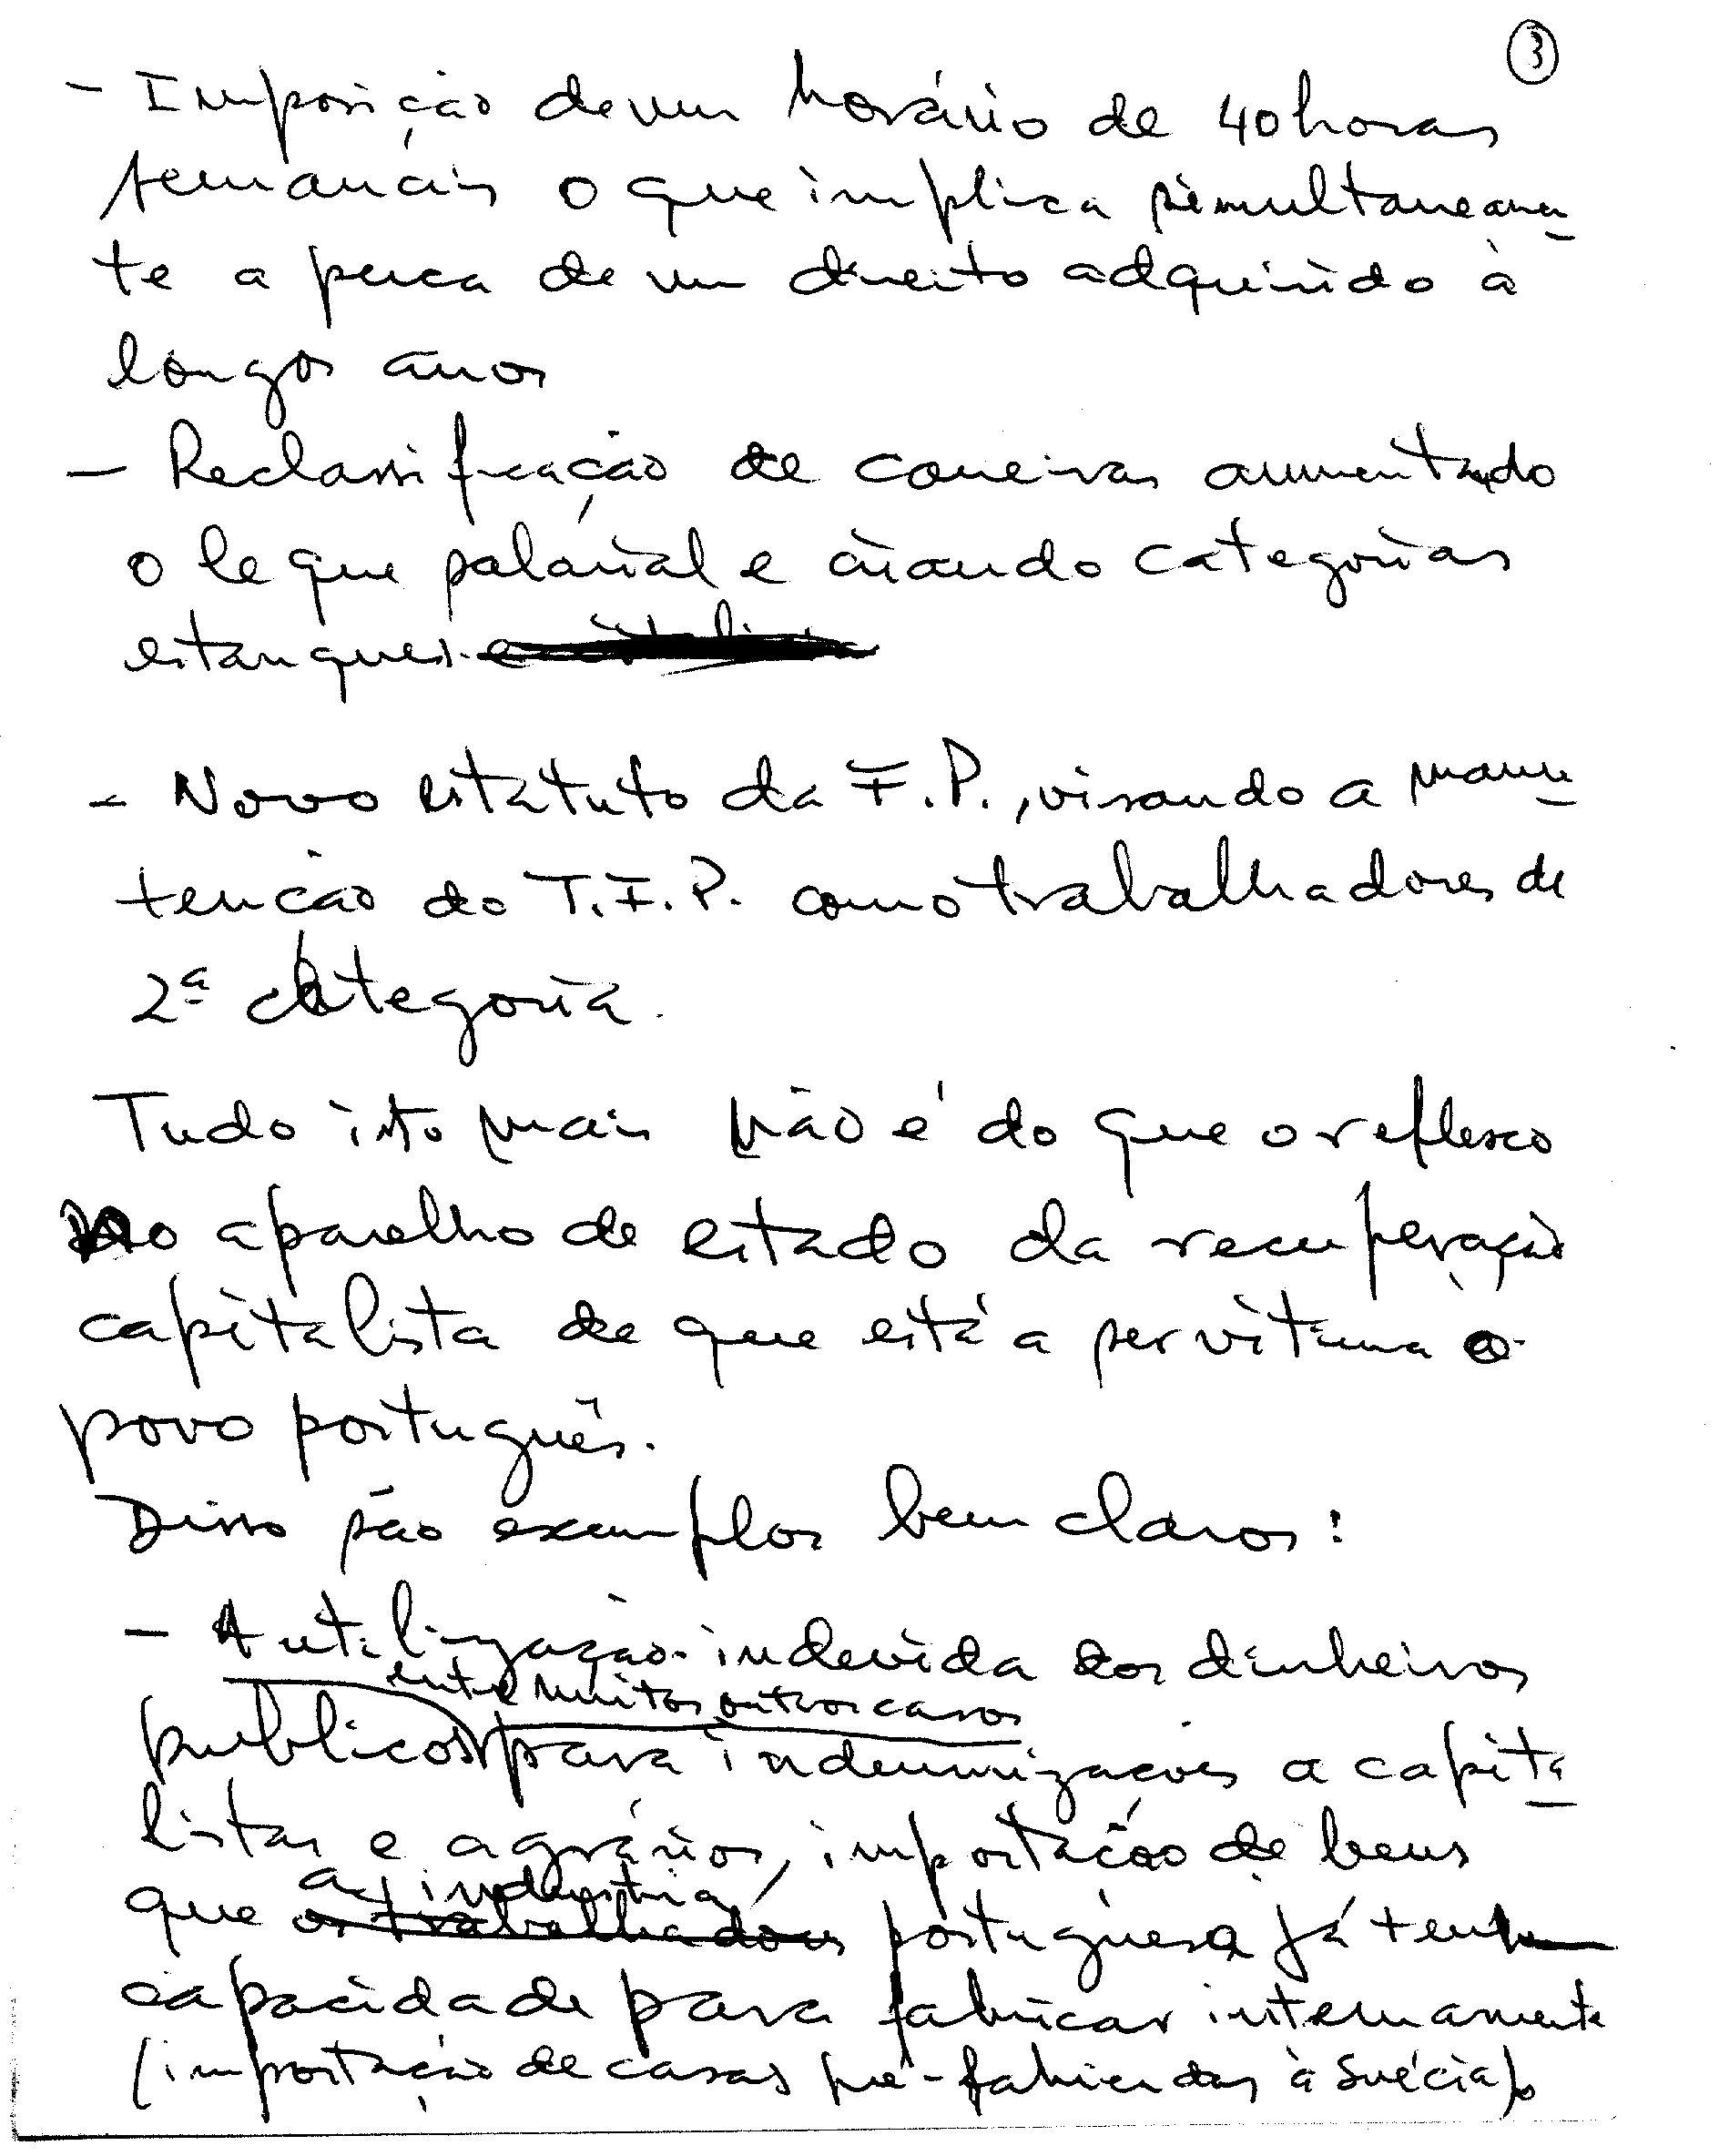 3
- Imposição de um horário de 40 horas
semanais o que implica simultaneamen-
te a perca de um direito adquirido à
longos anos
- Reclassificação de carreiras aumentando
o leque salárial e criando categorias
estanques.
- Novo estatuto da F.P., visando a manu-
tenção do T.F.P. como trabalhadores de
2ª categoria.
Tudo isto mais não é do que o reflexo
no aparelho de estado da recuperação
capitalista de que está a ser vitima o
povo português.
Disso são exemplos bem claros:
- A utilização indevida dos dinheiros
entre muitos outros casos
publicos para indemnizações a capita-
listas e agrários, importação de bens
a industria
que os trabalhadores portuguesa já tem
capacidade para fabricar internamente
(importação de casas pré-fabricadas à Suécia).